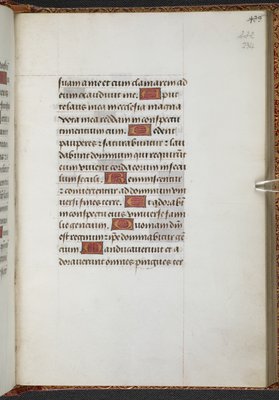 433
222
234
suam a me et cum clamarem ad
eum exaudivit me. Apud
te laus mea in ecclesia magna
vota mea reddam in conspectu
timentium eum. Edent
pauperes et saturabuntur et lau
dabunt dominum qui requirunt
eum vivent corda eorum in secu
lum seculi. Reminiscentur
et convertentur ad dominum uni
versi fines terre. Et adorabunt
in conspectu eius universe fami
lie gentium. Quoniam dni
est regnum et ipse dominabitur gen
tium. Manducaverunt et a
doraverunt omnes pingues ter